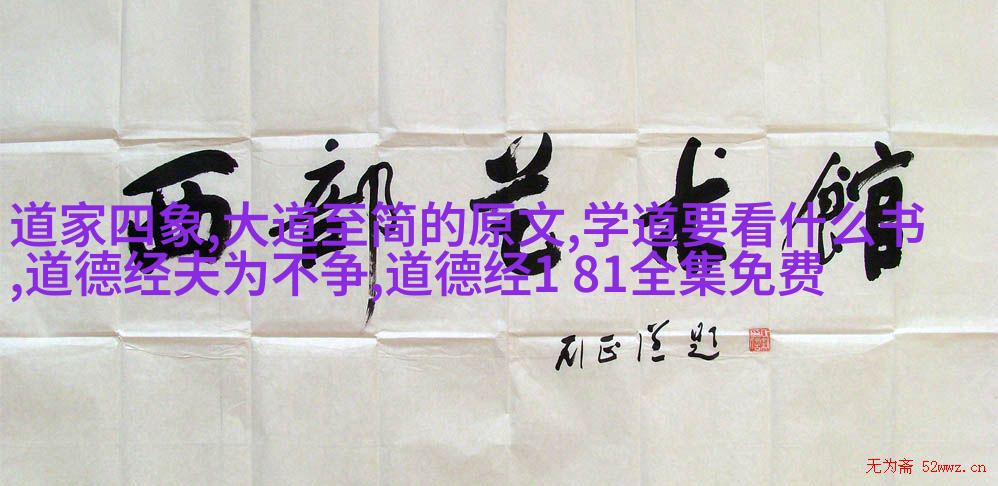 西部艺术馆
道家四象,大道至简的原文,学道要看什么书
,道德经夫为不争,道德经1 81全集免费
石正滋题
无为斋 52wwz.cn